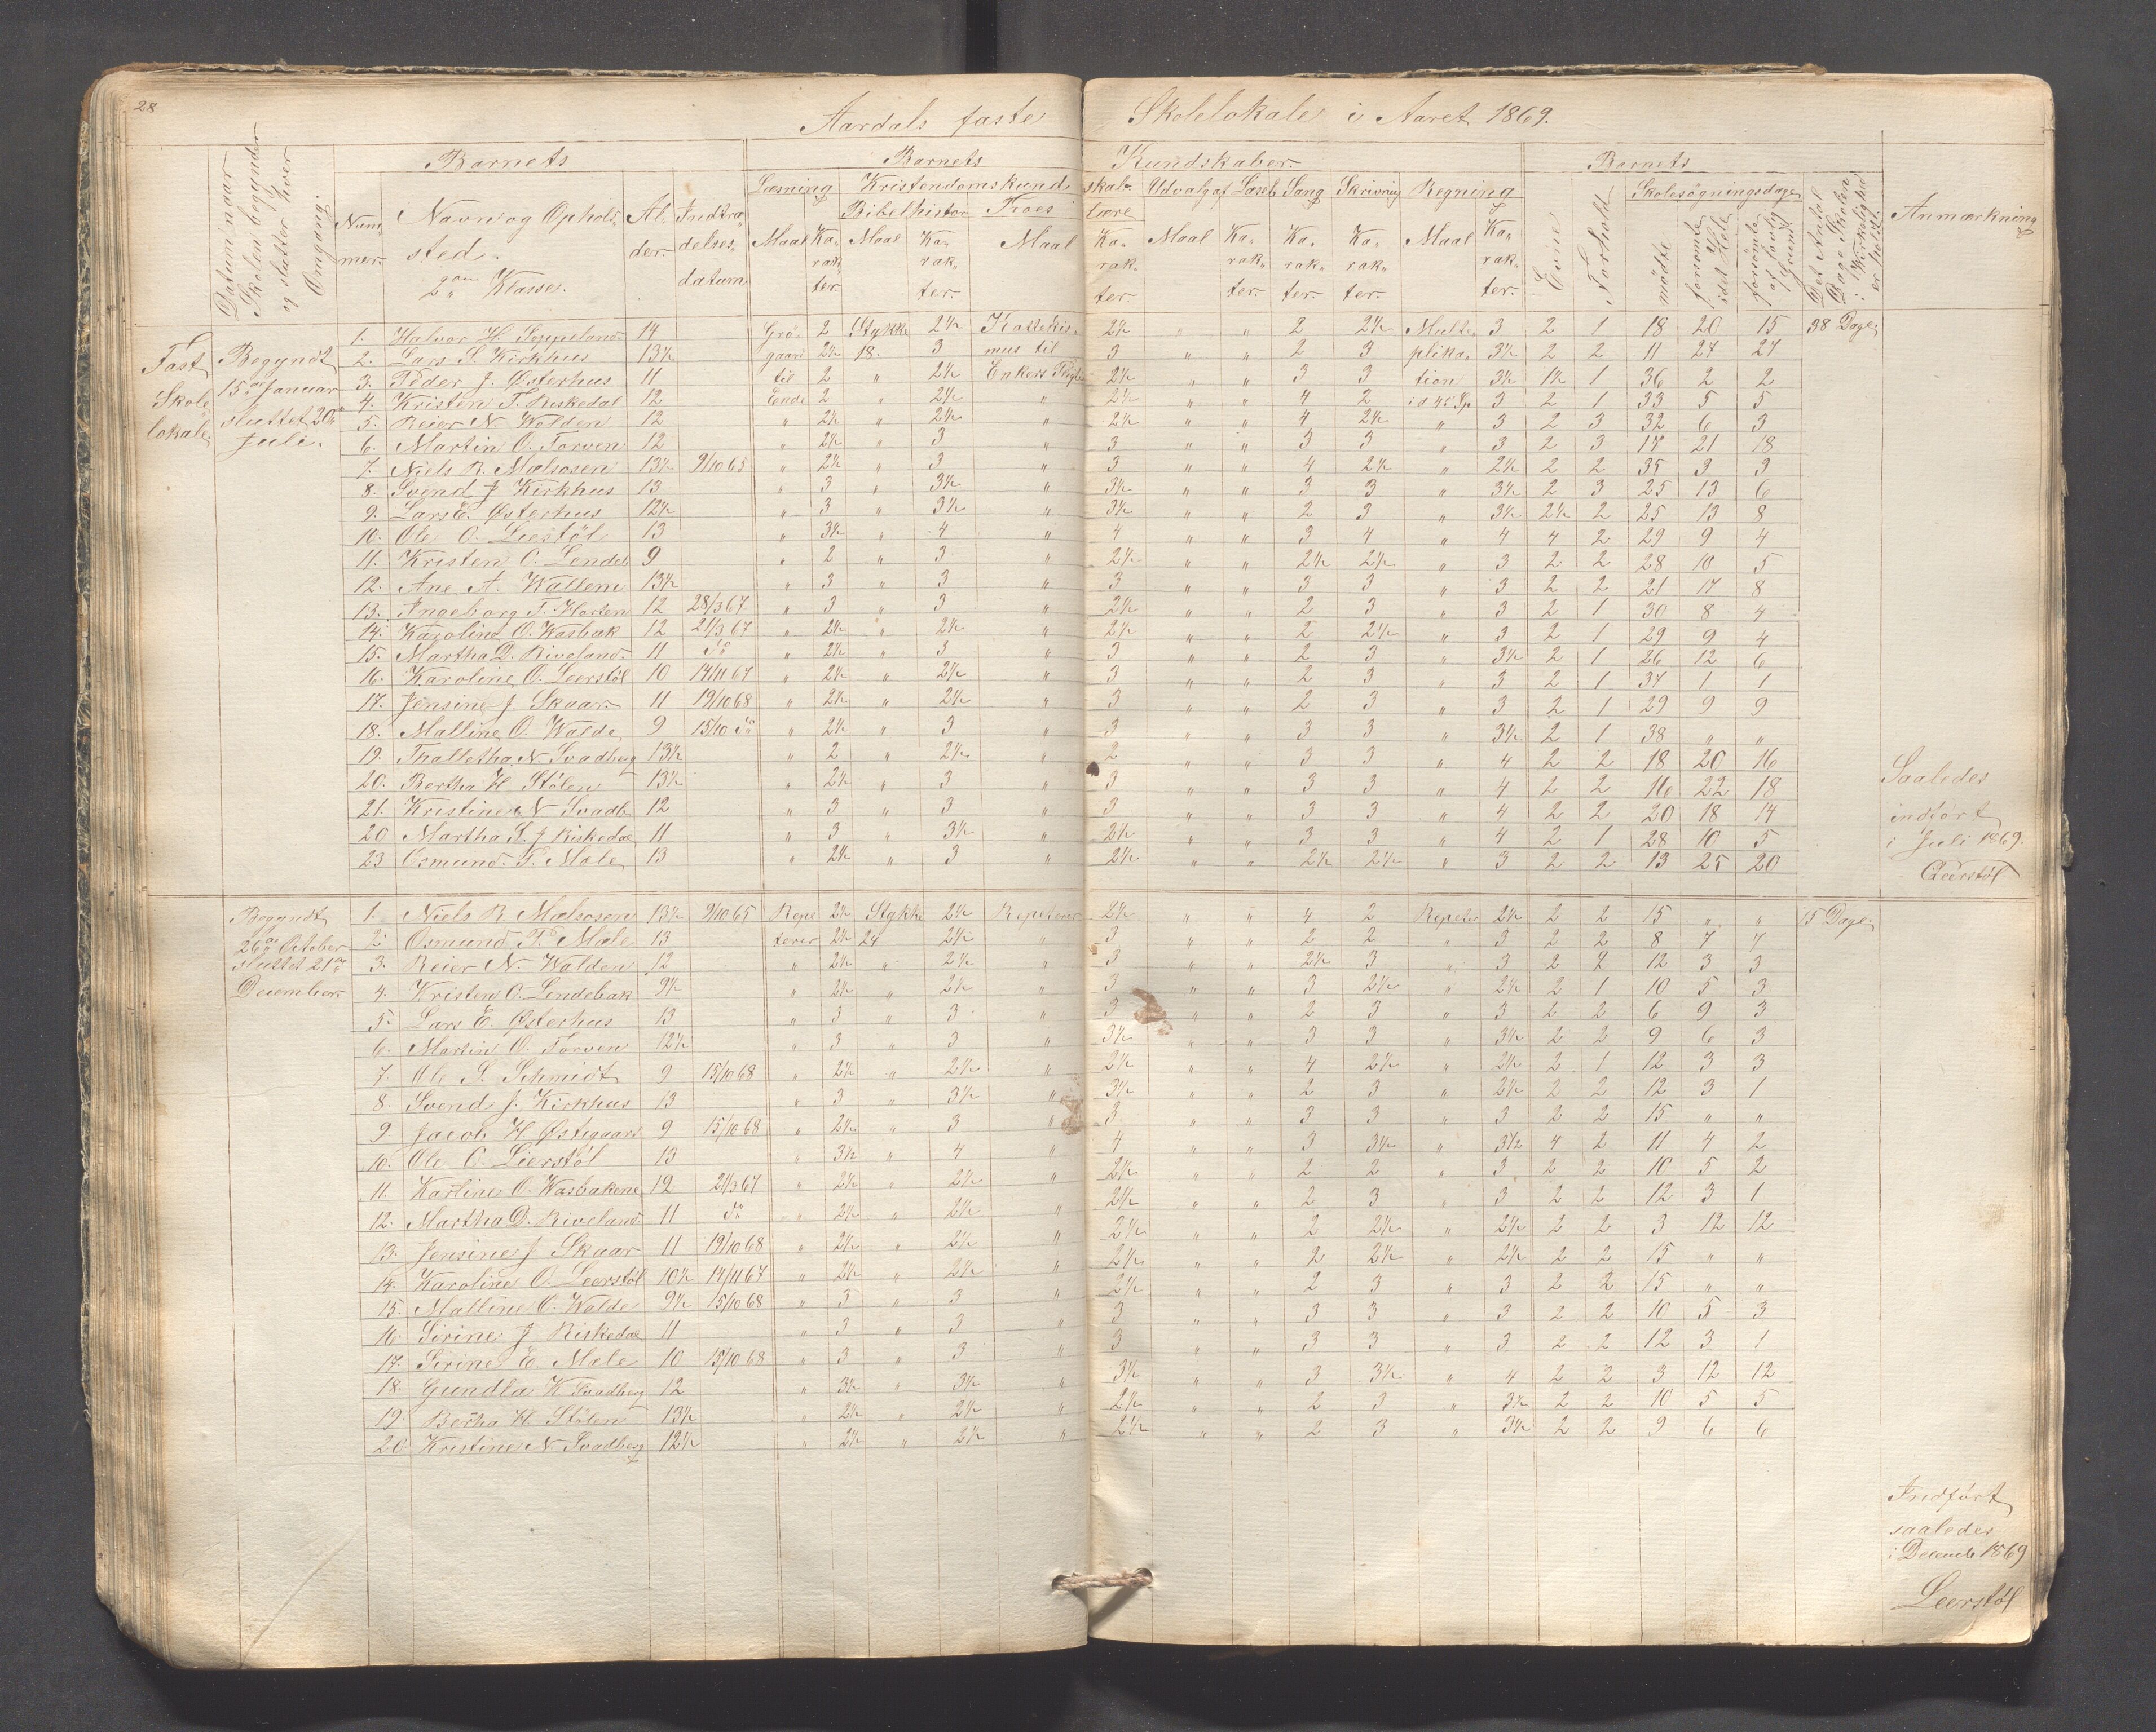 28
Aardals faste Skolelokale i Aaret 1869.
Datum naar Skolen begynder og slutter hver Omgang.
Barnets
Barnets Kundskaber.
Barnets
Nummer. Navn og Opholdssted. 2den Klasse. Alder. Indtrædelsesdatum
Læsning Kristendomskundskab. Udvalg af Læseb. Sang Skrivning Regning
Bibelhistorie Troeslære
Maal Karakter. Maal Karakter. Maal Karakter. Maal Karakter. Karakter. Karakter. Maal Karakter.
Evne Forhold Skolesøgningsdage mødte forsømte i det Hele forsømte af lovlig Grund Det Antal Dage Skolen i Virkelighed er holdt. Anmærkning
Fast Skolelokale
Begyndt 15de Januar sluttet 20de Juli.
1. Halvor H. Seppeland 14 Gro 2 Stykke 2½ Kattekis- 2½ „ „ 2 2½ Multi- 3 2 1 18 20 15 38 Dage.
2. Lars S. Kirkhus 13½ gaard 2½ 18. 3 mus til 3 „ „ 2 3 plika- 3½ 2 2 11 27 27
3. Peder J. Østerhus 11 til 2 „ 2½ Enkers Pligter 2½ „ „ 3 3 tion 3½ 1½ 1 36 2 2
4. Kristen T. Riskedal 12 Ende 2 „ 2½ „ 2½ „ „ 4 2 3 2 1 33 5 5
5. Reier N. Walden 12 „ 2½ „ 2½ „ 2½ „ „ 4 2½ „ 3 2 3 32 6 3
6. Martin O. Torven 12 „ 2½ „ 3 „ 3 „ „ 3 3 „ 3 2 3 17 21 18
7. Niels R. Mælsosen 13½ 9/10 65 „ 2½ „ 3 „ 3 „ „ 4 2½ „ 2½ 2 2 35 3 3
8. Svend J. Kirkhus 13 „ 3 „ 3½ „ 3½ „ „ 3 3 „ 3½ 2 3 25 13 6
9. Lars E. Østerhus 12½ „ 3 „ 3½ „ 3½ „ „ 2 3 „ 3½ 2½ 2 25 13 8
10. Ole O. Leerstöl 13 „ 3½ „ 4 „ 4 „ „ 3 4 „ 4 4 2 29 9 4
11. Kristen O. Lendeb 9 „ 2 „ 3 „ 2½ „ „ 2½ 2½ „ 3 2 2 28 10 5
12. Ane A. Wallem 13½ „ 3 „ 3 „ 3 „ „ 3 3 „ 3 2 2 21 17 8
13. Ingeborg T. Horten 12 28/3 67 „ 3 „ 3 „ 2½ „ „ 2 3 „ 3 2 1 30 8 4
14. Karoline O. Wasbak 12 21/3 67 „ 2½ „ 2½ „ 2½ „ „ 2 2½ „ 3 2 1 29 9 4
15. Martha D. Riveland. 11 do „ 2½ „ 3 „ 3 „ „ 2 3 „ 3½ 2 1 26 12 6
16. Karoline O. Leerstöl 10 14/11 67 „ 2½ „ 2½ „ 3 „ „ 2 3 „ 3 2 1 37 1 1
17. Jensine J. Skaar. 11 19/10 68 „ 2½ „ 2½ „ 3 „ „ 2 3 „ 3 2 1 29 9 9
18. Malline O. Walde 9 15/10 do „ 2½ „ 3 „ 3 „ „ 3 3 „ 3½ 2 1 38 „ „
19. Thalletha N. Svadberg 13½ „ 2 „ 2½ „ 2 „ „ 3 3 „ 4 2 2 18 20 16
20. Bertha H. Stölen 13½ „ 2½ „ 3 „ 3 „ „ 3 3 „ 4 2 2 16 22 18
21. Kristine N. Svadb. 12 „ 3 „ 3 „ 3 „ „ 3 3 „ 4 2 2 20 18 14
20 Martha S. J. Riskedal 11 „ 3 „ 3½ „ 2½ „ „ 3 3 „ 4 2 1 28 10 5
23 Osmund T. Mæle 13 „ 2½ „ 3 „ 2½ „ „ 2½ 2½ „ 3 2 2 13 25 20
Saaledes
indført
i Juli 1869.
OLeerstöl
Begyndt
26de October
sluttet 21de
December
1. Niels R. Mælsosen 13½ 9/10 65 Repe 2½ Stykke 2½ Repeterer 2½ „ „ 4 2 Repeter 2½ 2 2 15 „ „ 15 Dage.
2. Osmund T. Mæle 13 terer 2½ 24 2½ „ 3 „ „ 2 2 „ 3 2 2 8 7 7
3. Reier N. Walden 12 „ 2½ „ 2½ „ 3 „ „ 2½ 3 „ 3 2 2 12 3 3
4. Kristen O. Lendebak 9½ „ 2½ „ 2½ „ 3 „ „ 3 2½ „ 2½ 2 1 10 5 3
5. Lars E. Østerhus 13 „ 3 „ 3 „ 3 „ „ 2 3 „ 3 2 2 6 9 3
6. Martin O. Torven 12½ „ 3 „ 3 „ 3½ „ „ 3 3 „ 3½ 2 2 9 6 3
7. Ole S. Schmidt 9 15/10 68 „ 2½ „ 2½ „ 2½ „ „ 4 2½ „ 2½ 2 1 12 3 3
8. Svend J. Kirkhus 13 „ 3 „ 3½ „ 3½ „ „ 2 3 „ 2½ 2 2 12 3 1
9 Jacob H. Østigaard 9 15/10 68 „ 2½ „ 3 „ 3 „ „ 3 3 „ 3 2 2 15 „ „
10. Ole O. Lierstöl 13 „ 3½ „ 4 „ 4 „ „ 3 3½ „ 3½ 4 2 11 4 2
11. Karline O. Wasbakene 12 21/3 67 „ 2½ „ 2½ „ 2½ „ „ 2 2 „ 3 2 2 10 5 2
12. Martha D. Riveland 11 do „ 2½ „ 2½ „ 2½ „ „ 2 3 „ 3 2 2 12 3 1
13. Jensine J Skaar 11 19/10 68 „ 2½ „ 2½ „ 2½ „ „ 2 2½ „ 2½ 2 2 3 12 12
14. Karoline O. Leerstöl 10½ 14/11 67 „ 2½ „ 2½ „ 2½ „ „ 2 2½ „ 2½ 2 2 15 „ „
15. Malline O. Walde 9½ 15/10 68 „ 3 „ 3 „ 2½ „ „ 2 3 „ 3 2 2 15 „ „
16. Sirine J Riskedal 11 „ 3 „ 3 „ 3 „ „ 3 3 „ 3 2 2 10 5 3
17. Serine E. Mæle 10 15/10 68 „ 3 „ 3 „ 3 „ „ 3 3 „ 3 2 2 12 3 1
18. Gundla K. Svadberg 12 „ 3½ „ 3½ „ 3½ „ „ 3 3½ „ 4 2 2 3 12 12
19 Bertha H. Stölen 13½ „ 2½ „ 2½ „ 2½ „ „ 2 3 „ 3½ 2 2 10 5 5
20 Kristine N. Svadberg 12½ „ 2½ „ 2½ „ 2½ „ „ 2 3 „ 3½ 2 2 9 6 6
Indført
saaledes
i Decemb 1869
Leerstöl